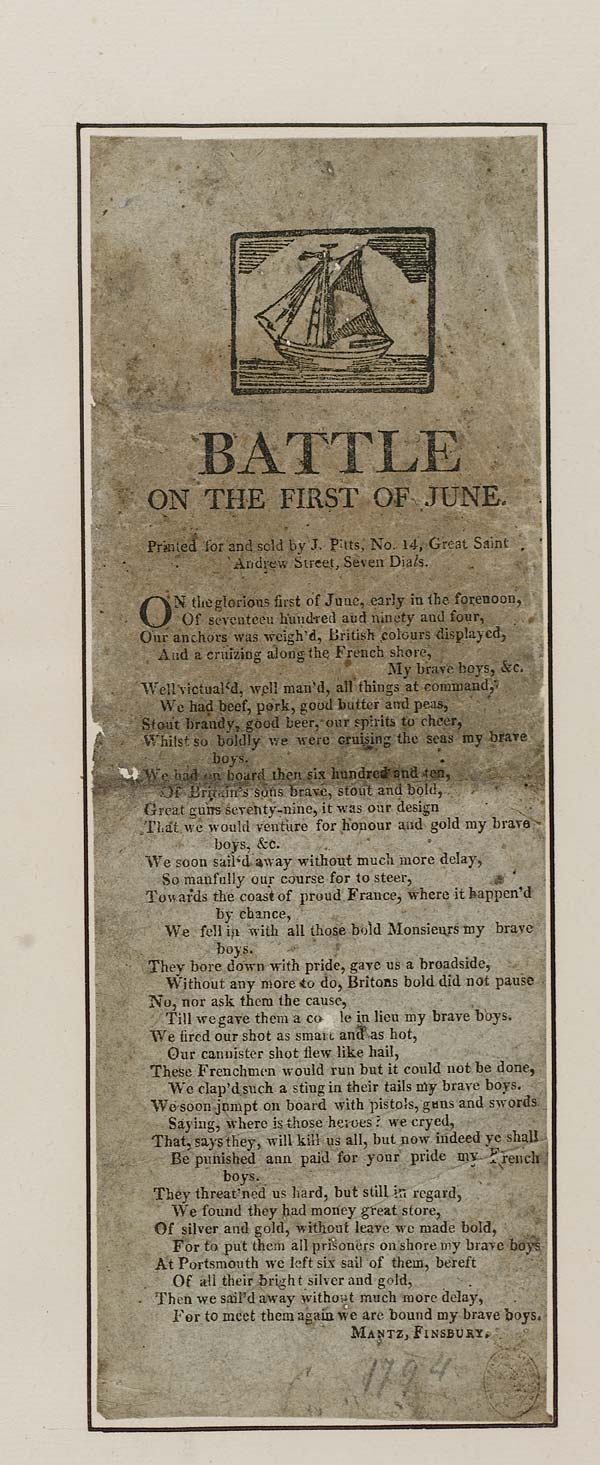 BATTLE
ON THE FIRST OF JUNE.
Printed for and sold by J. Pitts, No. 14, Great Saint
Andrew Street, Seven Dials.
ON the glorious first of June, early in the forenoon,
Of seventeen hundred and ninety and four,
Our anchors was weigh'd, British colours displayed,
And a cruizing along the French shore,
My brave boys, &c.
Well victual'd, well man'd, all things at command,
We had beef, pork, good butter and peas,
Stout brandy, good beer, our spirits to cheer,
Whilst so boldly we were cruising the seas my brave
boys.
We had on board then six hundred and ten,
Of Britain's sons brave, stout and bold,
Great guns seventy-nine, it was our design
That we would venture for honour and gold my brave
boys, &c.
We soon sail'd away without much more delay,
So manfully our course for to steer,
Towards the coast of proud France, where it happen'd
by chance,
We fell in with all those bold Monsieurs my brave
boys.
They bore down with pride, gave us a broadside,
Without any more to do, Britons bold did not pause
No, nor ask them the cause,
Till we gave them a co le in lieu my brave boys.
We fired our shot as smart and as hot,
Our cannister shot flew like hail,
These Frenchmen would run but it could not be done,
We clap'd such a sting in their tails my brave boys.
We soon jnmpt on board with pistols, guns and swords
Saying, where is those heroes? we cryed,
That, says they, will kill us all, but now indeed ye shall
Be punished ann paid for your pride my French
boys.
They threat'ned us hard, but still in regard,
We found they had money great store,
Of silver and gold, without leave we made bold,
For to put them all prisoners on shore my brave boys
At Portsmouth we left six sail of them, bereft
Of all their bright silver and gold,
Then we sail'd away without much more delay,
For to meet them again we are bound my brave boys.
MANTZ, FINSBURY.
1794